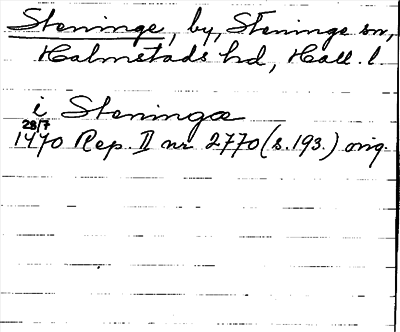 Steninge, by, Steninge sn,
Halmstads hd, Hall. l.
i Steningæ
28/7
1470 Rep. II nr 2770 (s. 193.) orig.